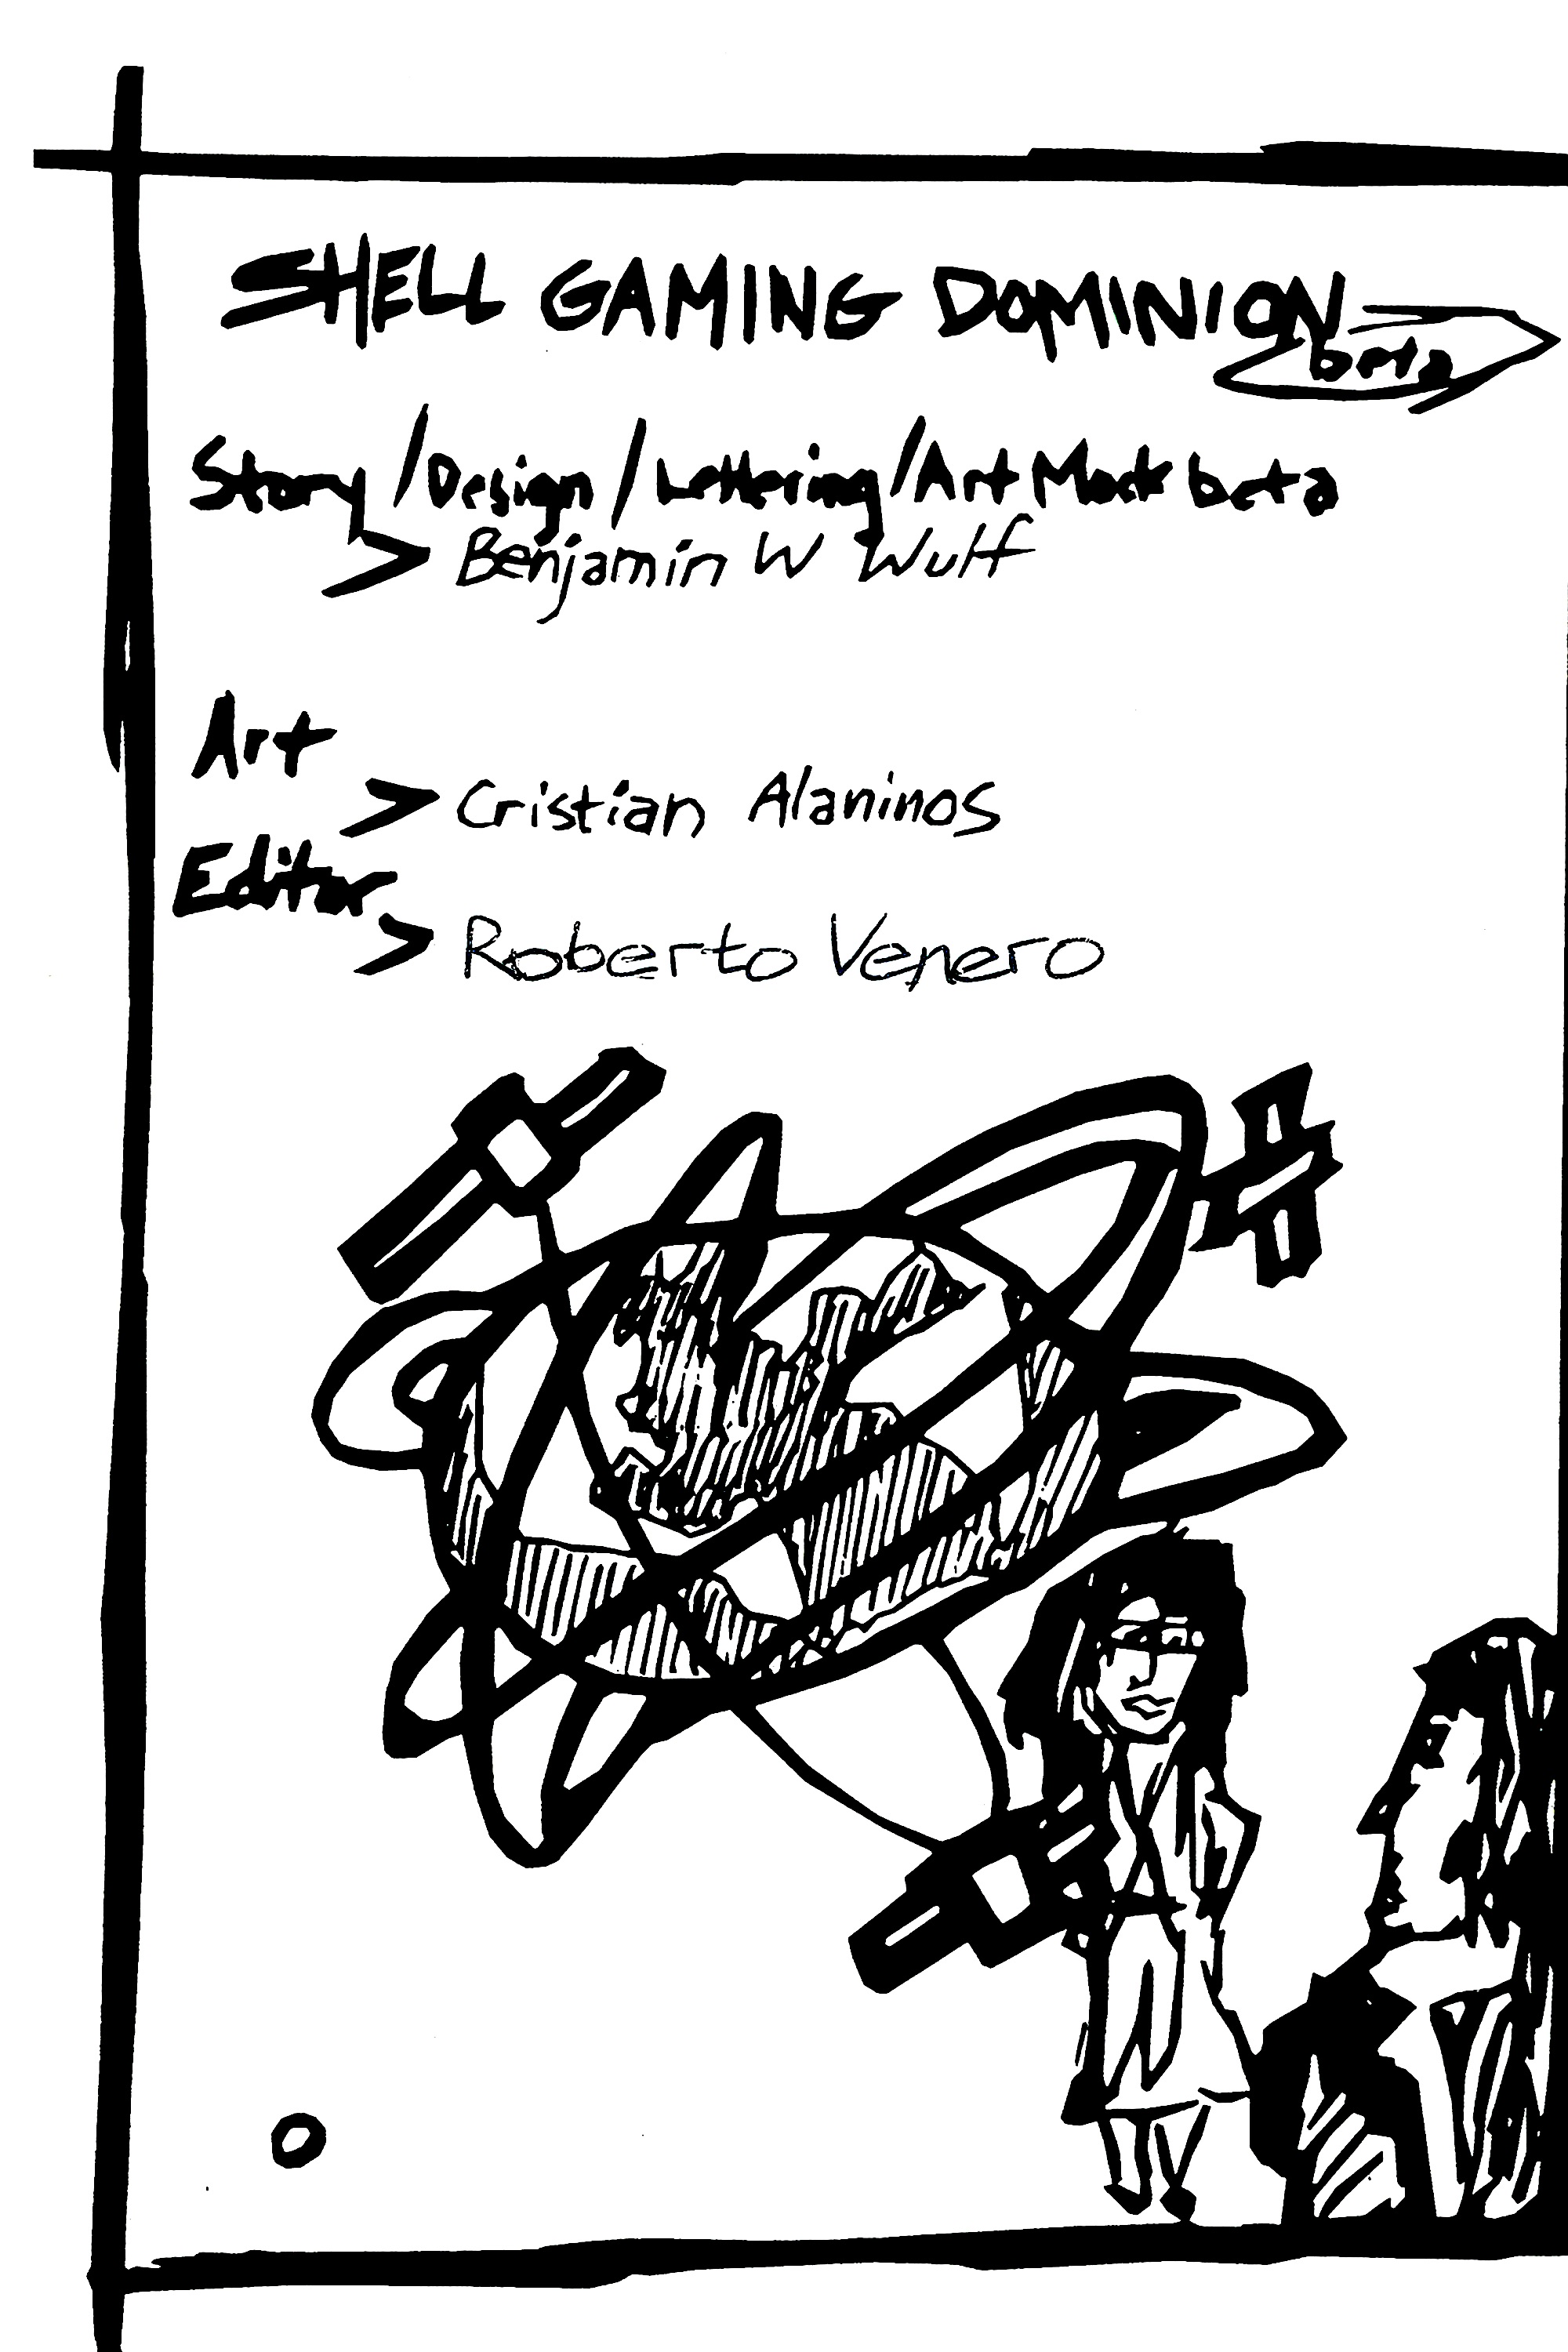 SHELL GAMING DOMINION
Story / Design / Lettering / Art Mock beta
> Benjamin W Wulf
Art
> Cristian Alaninos
Editor
> Roberto Venero
#
0